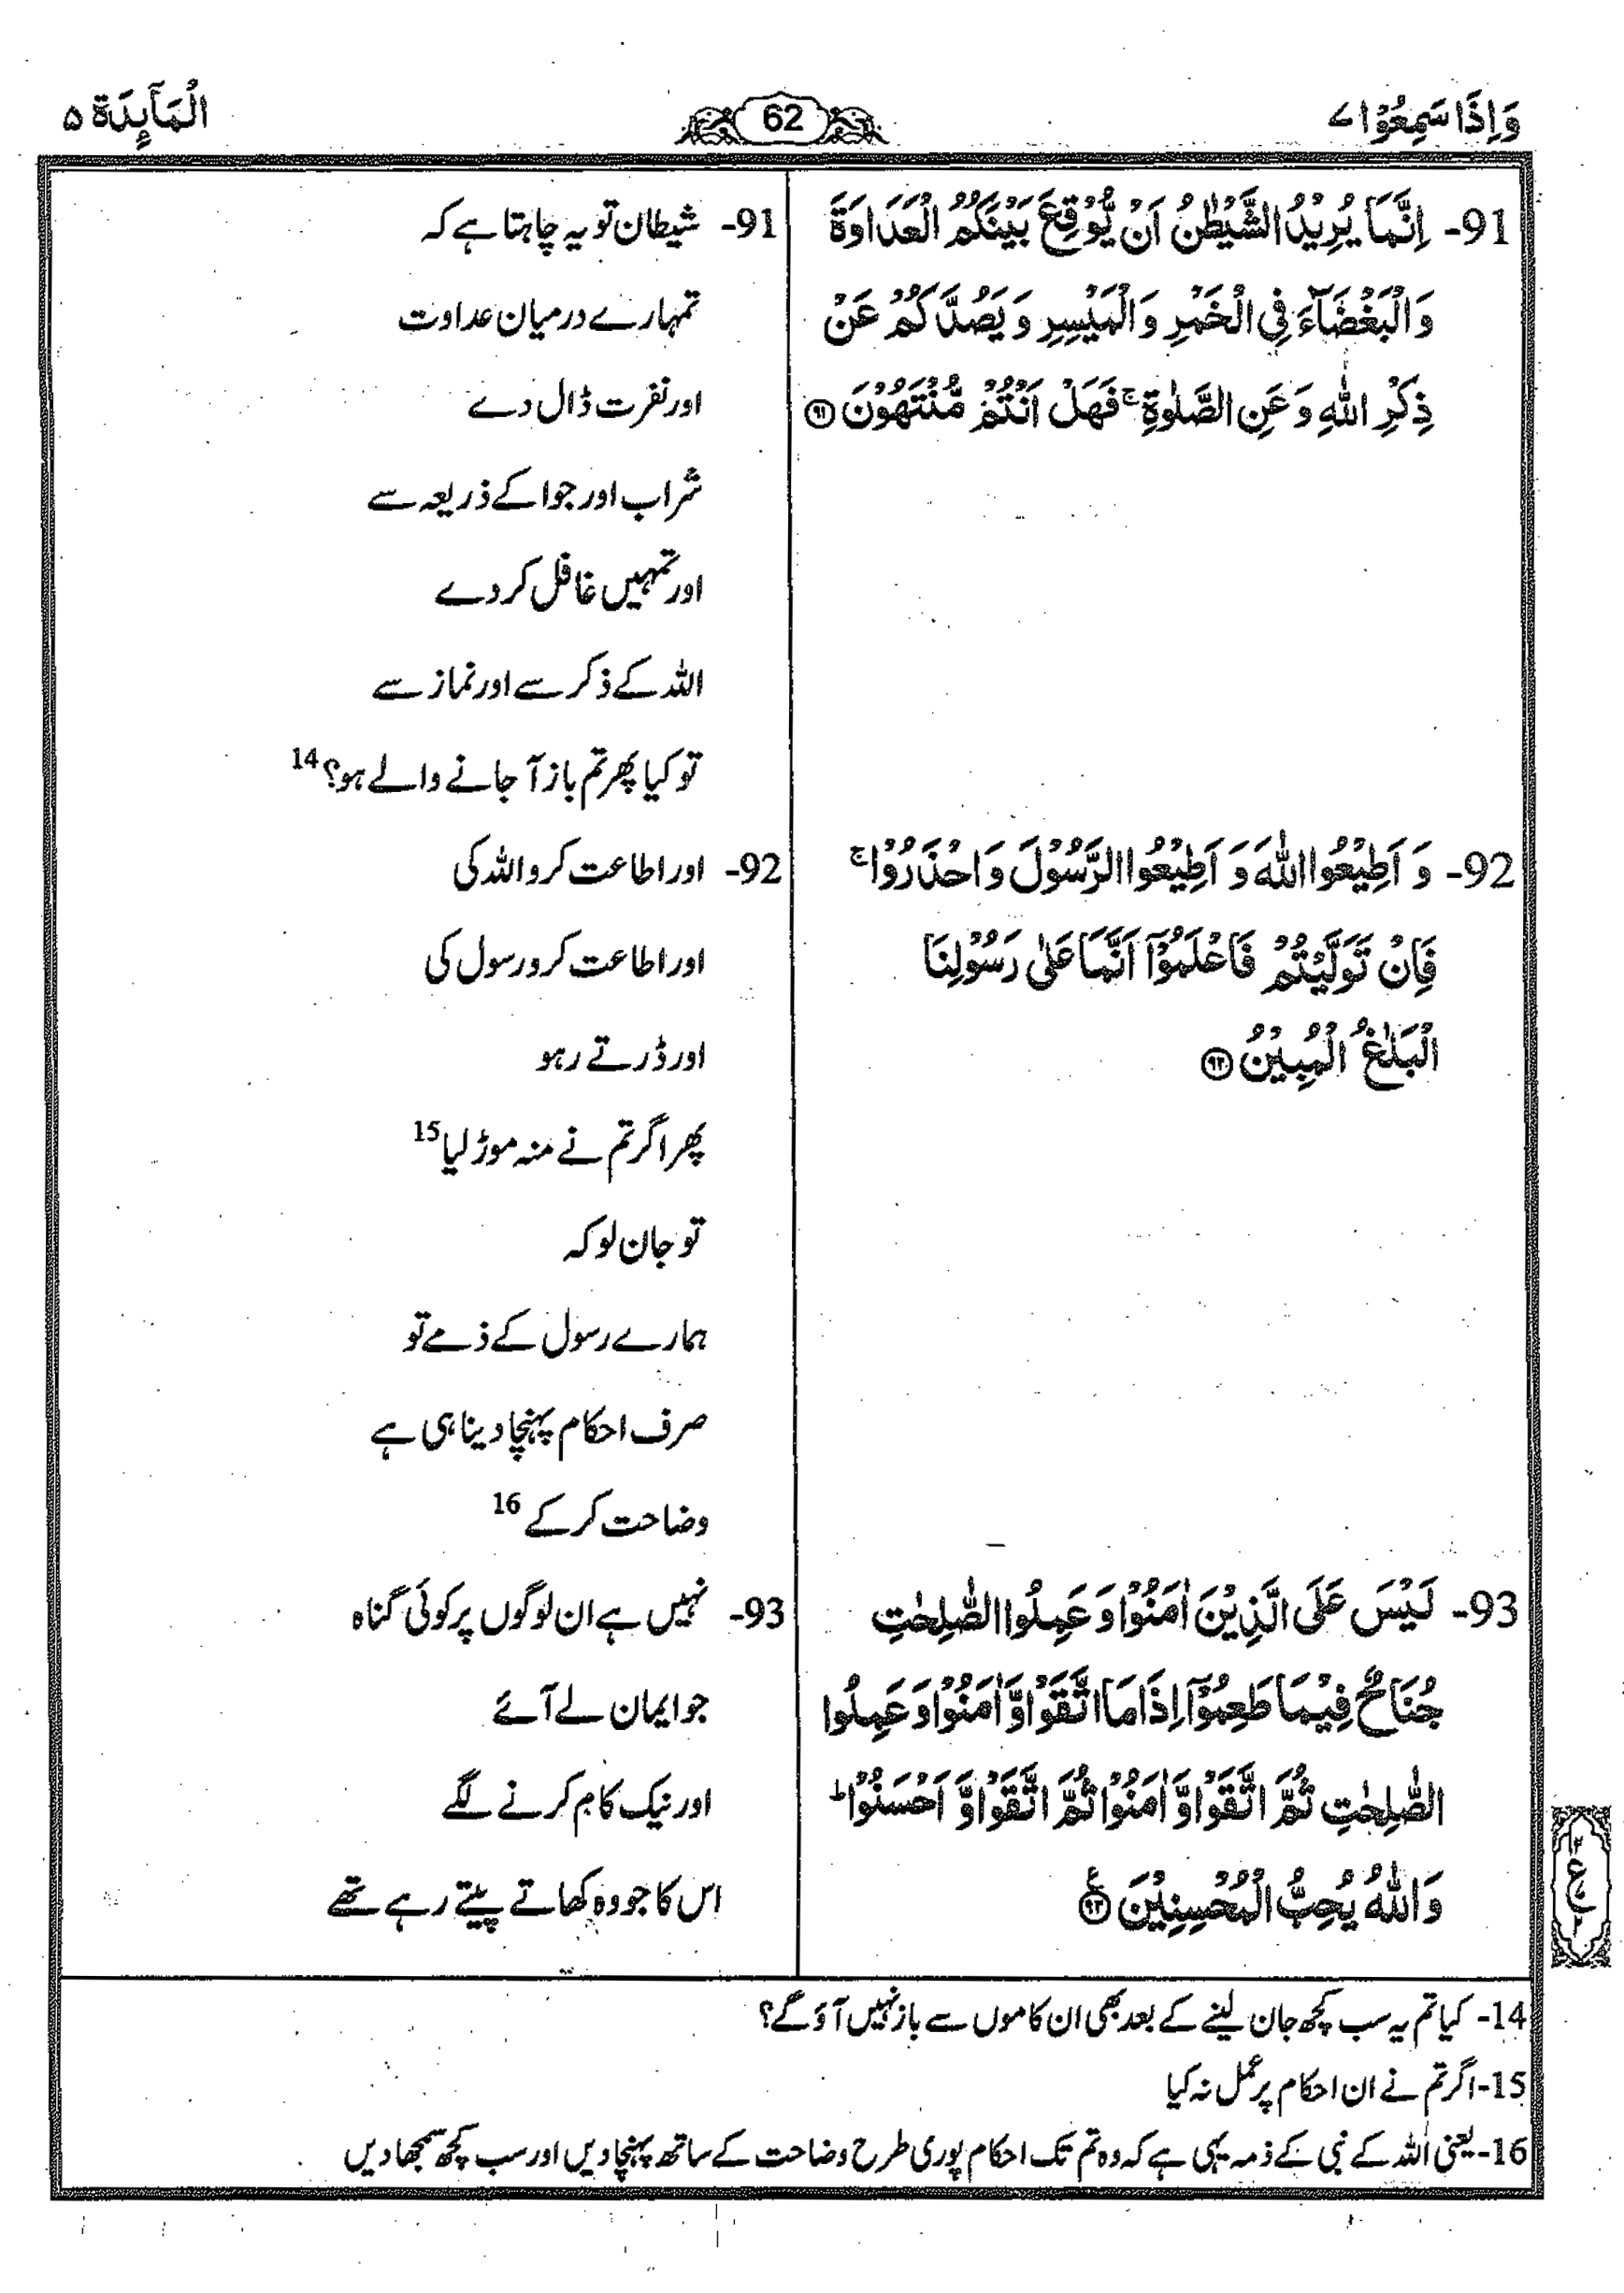 وَاِذَا سَمِعُوْا ۷
62
الْمَآئِدَة ۵
91- اِنَّمَا يُرِيْدُ الشَّيْطٰنُ اَنْ يُّوْقِعَ بَيْنَكُمُ الْعَدَاوَةَ
وَالْبَغْضَآءَ فِي الْخَمْرِ وَالْمَيْسِرِ وَيَصُدَّكُمْ عَنْ
ذِكْرِ اللّٰهِ وَعَنِ الصَّلٰوةِ ۚ فَهَلْ اَنْتُمْ مُّنْتَهُوْنَ ۹۱
92- وَاَطِيْعُوا اللّٰهَ وَاَطِيْعُوا الرَّسُوْلَ وَاحْذَرُوْا ۚ
فَاِنْ تَوَلَّيْتُمْ فَاعْلَمُوْٓا اَنَّمَا عَلٰى رَسُوْلِنَا
الْبَلٰغُ الْمُبِيْنُ ۹۲
93- لَيْسَ عَلَى الَّذِيْنَ اٰمَنُوْا وَعَمِلُوا الصّٰلِحٰتِ
جُنَاحٌ فِيْمَا طَعِمُوْٓا اِذَا مَا اتَّقَوْا وَّاٰمَنُوْا وَعَمِلُوا
الصّٰلِحٰتِ ثُمَّ اتَّقَوْا وَّاٰمَنُوْا ثُمَّ اتَّقَوْا وَّاَحْسَنُوْا ؕ
وَاللّٰهُ يُحِبُّ الْمُحْسِنِيْنَ ۹۳
91- شیطان تو یہ چاہتا ہے کہ
تمہارے درمیان عداوت
اور نفرت ڈال دے
شراب اور جوا کے ذریعہ سے
اور تمہیں غافل کر دے
اللہ کے ذکر سے اور نماز سے
تو کیا پھر تم باز آ جانے والے ہو؟ 14
92- اور اطاعت کرو اللہ کی
اور اطاعت کرو رسول کی
اور ڈرتے رہو
پھر اگر تم نے منہ موڑ لیا 15
تو جان لو کہ
ہمارے رسول کے ذمے تو
صرف احکام پہنچا دینا ہی ہے
وضاحت کر کے 16
93- نہیں ہے ان لوگوں پر کوئی گناہ
جو ایمان لے آئے
اور نیک کام کرنے لگے
اس کا جو وہ کھاتے پیتے رہے تھے
14- کیا تم یہ سب کچھ جان لینے کے بعد بھی ان کاموں سے باز نہیں آؤ گے؟
15- اگر تم نے ان احکام پر عمل نہ کیا
16- یعنی اللہ کے نبی کے ذمہ یہی ہے کہ وہ تم تک احکام پوری طرح وضاحت کے ساتھ پہنچا دیں اور سب کچھ سمجھا دیں